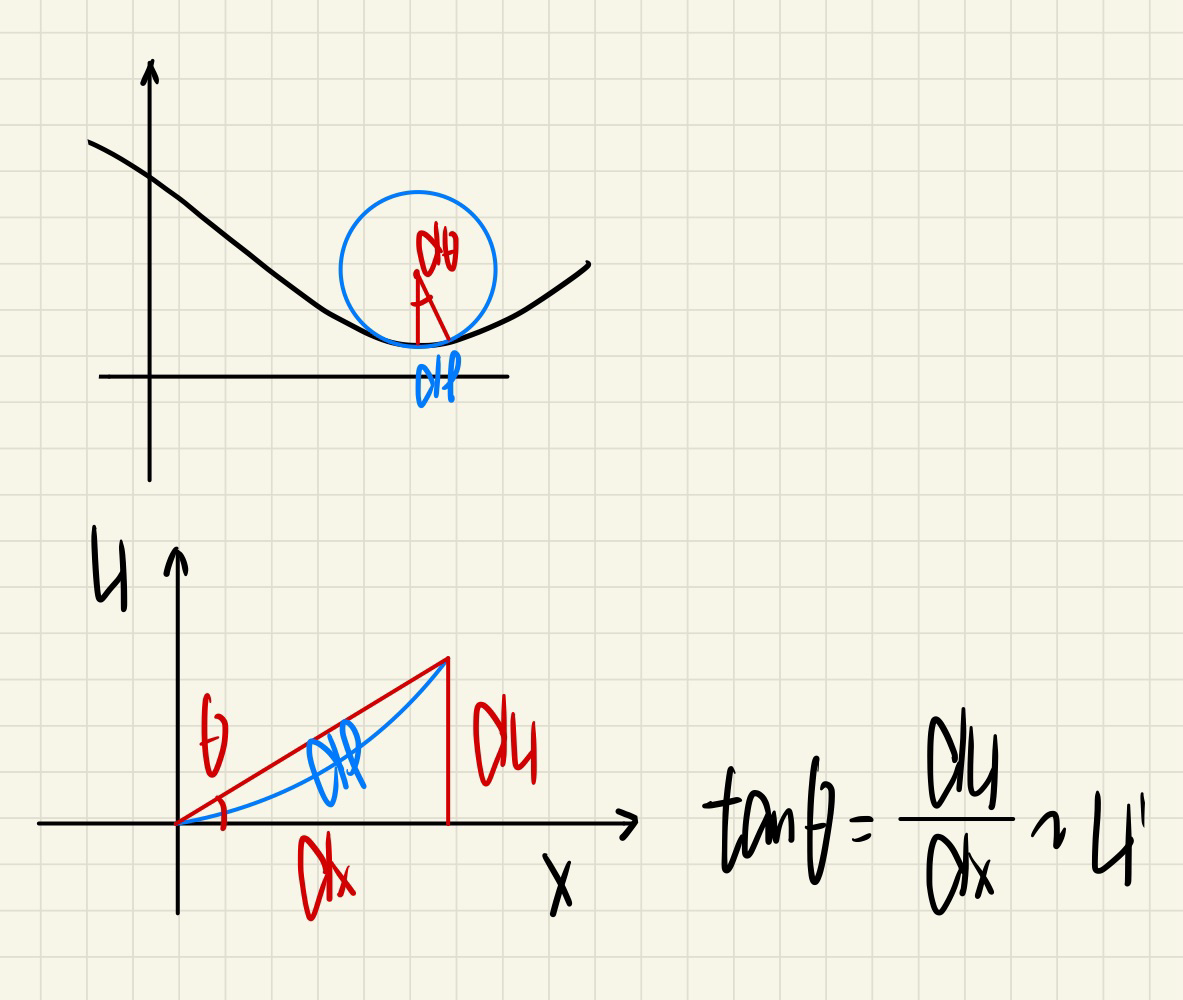 dθ
dℓ
y
θ
dℓ
dy
dx
x
tanθ = dy/dx ~ y'